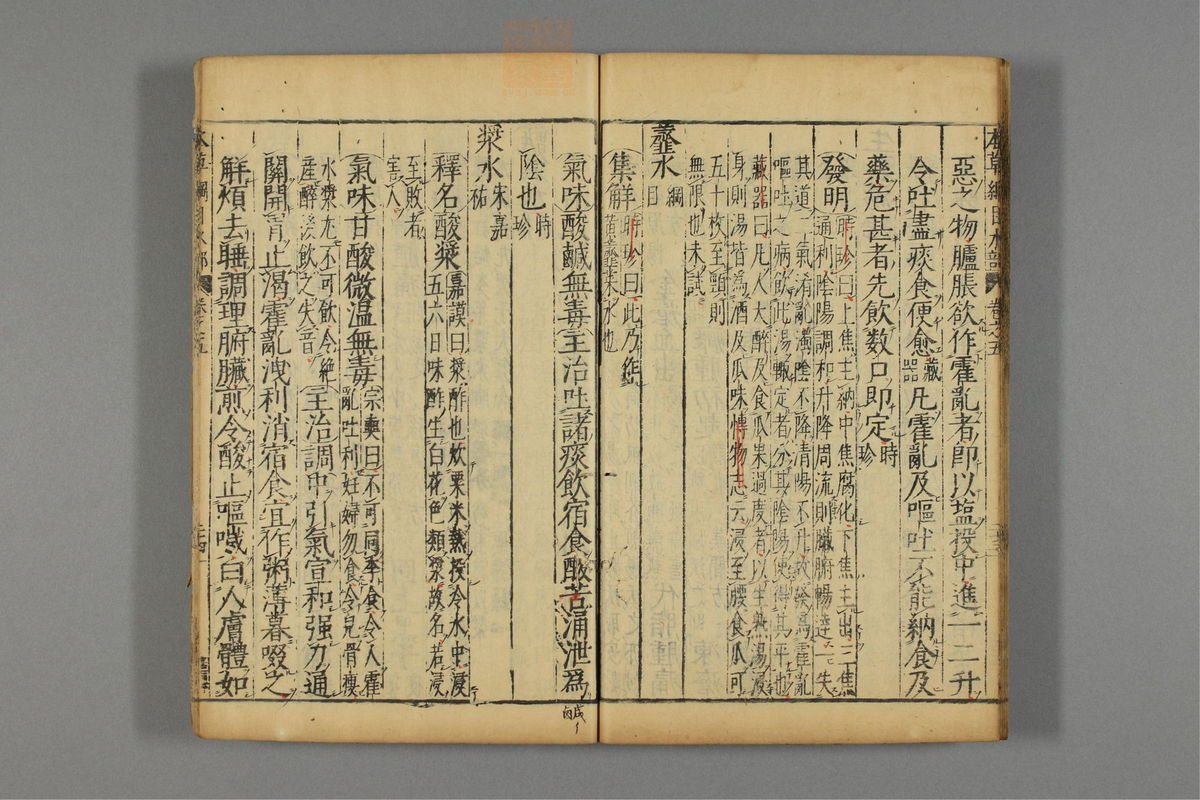 本草綱目水部 卷之五
惡之物臚脹欲作霍亂者即以塩投中進一二升
令吐盡痰食便愈藏器凡霍亂及嘔吐不能納食及
藥危甚者先飲数口即定時珍
發明時珍曰上焦主納中焦腐化下焦主出三焦
通利陰陽調和升降周流則臟腑暢達一失
其道二氣淆亂濁陰不降清陽不升故發爲霍亂
嘔吐之病飲此湯輒定者分其陰陽使得其平也
藏器曰凡人大醉及食瓜果過度者以生熟湯浸
身則湯皆爲酒及瓜味愽物志云浸至腰食瓜可
五十枚至頸則
無限也未試
虀水綱目
集解時珍曰此乃作
黄虀菜水也
氣味酸鹹無毒主治吐諸痰飲宿食酸苦涌泄爲
陰也時珍
漿水宋嘉祐
釋名酸漿嘉謨曰漿酢也炊粟米熱投冷水中浸
五六日味酢生白花色類漿故名若浸
至敗者
害人
氣味甘酸微温無毒宗奭曰不可同李食令人霍
亂吐利妊婦勿食令兒骨瘦
水漿尤不可飲令絶
産醉後飲之失音主治調中引氣宣和强力通
關開胃止渴霍亂洩利消宿食宜作粥薄暮啜之
解煩去睡調理腑臟煎令酸止嘔噦白人膚體如
本草綱目水部 卷之五